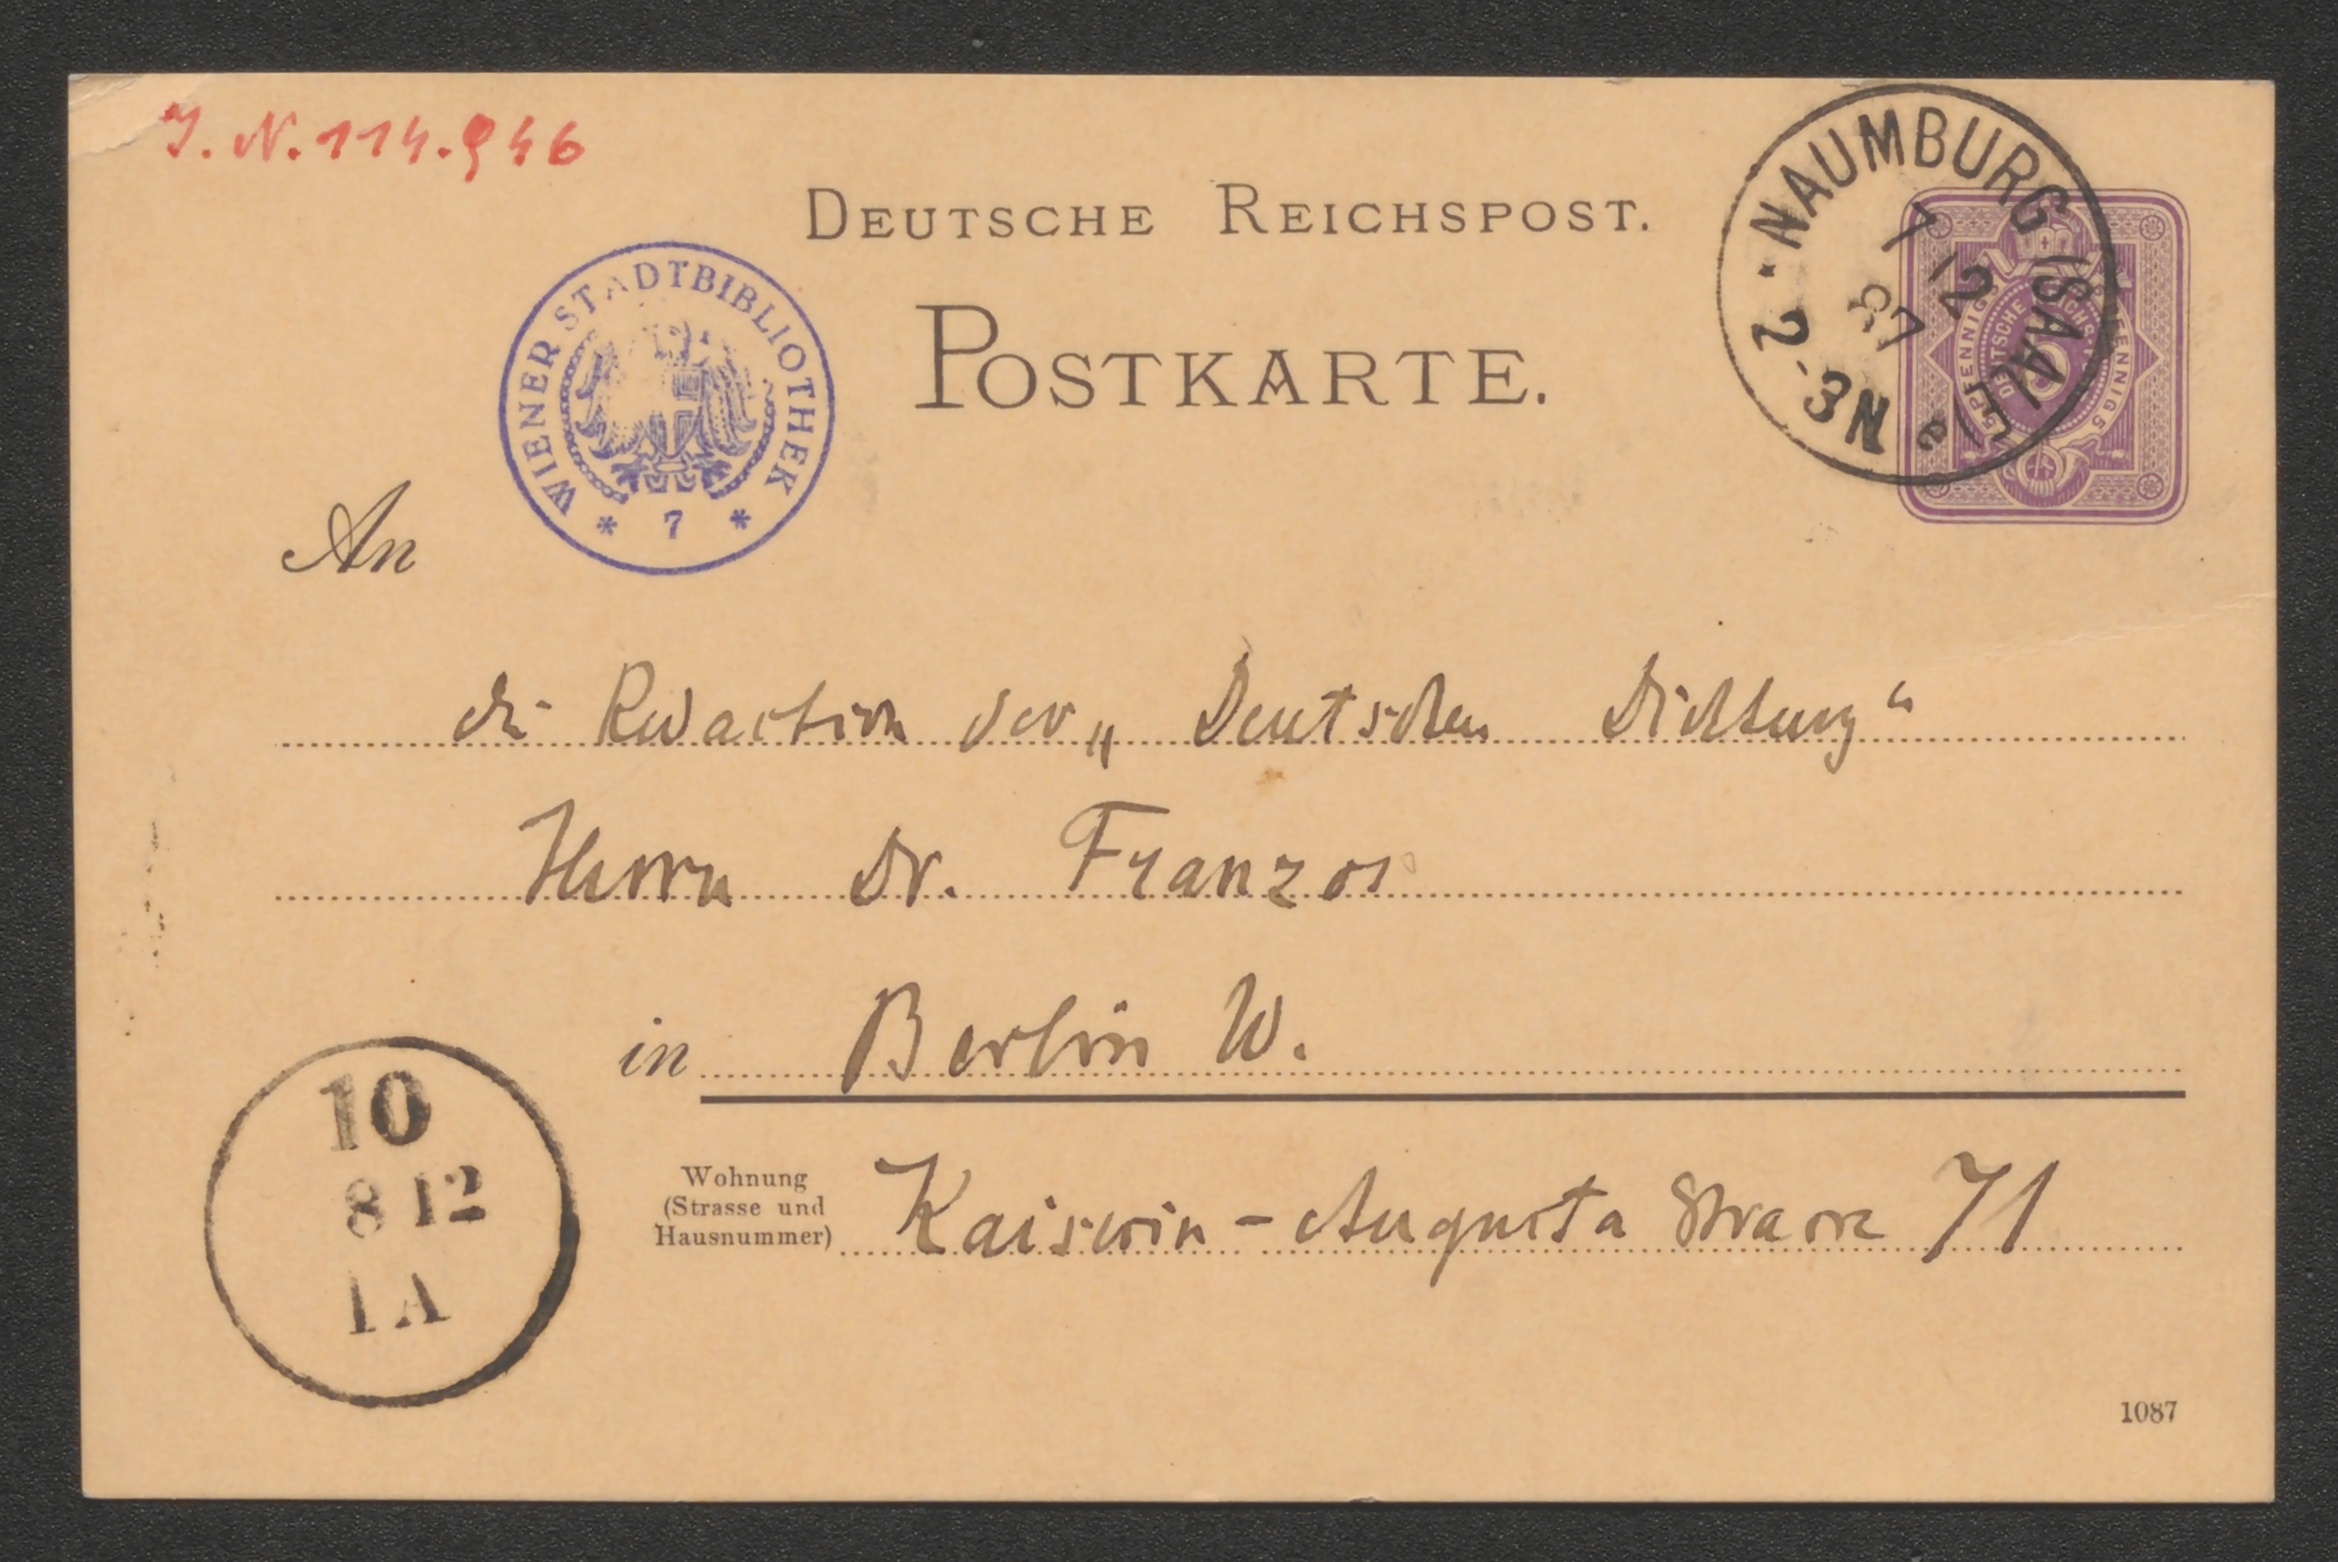 J. N. 114.946
DEUTSCHE REICHSPOST.
POSTKARTE.
WIENER STADTBIBLIOTHEK
* 7 *
NAUMBURG (SAALE)
7
12
87
2-3N
5 PFENNIG 5 PFENNIG
DEUTSCHE REICHSPOST
An
die Redaction der „Deutschen Dichtung“
Herrn Dr. Franzos
in Berlin W.
Wohnung
(Strasse und
Hausnummer)
Kaiserin-Augusta Strasse 71
10
8 12
1 A
1087